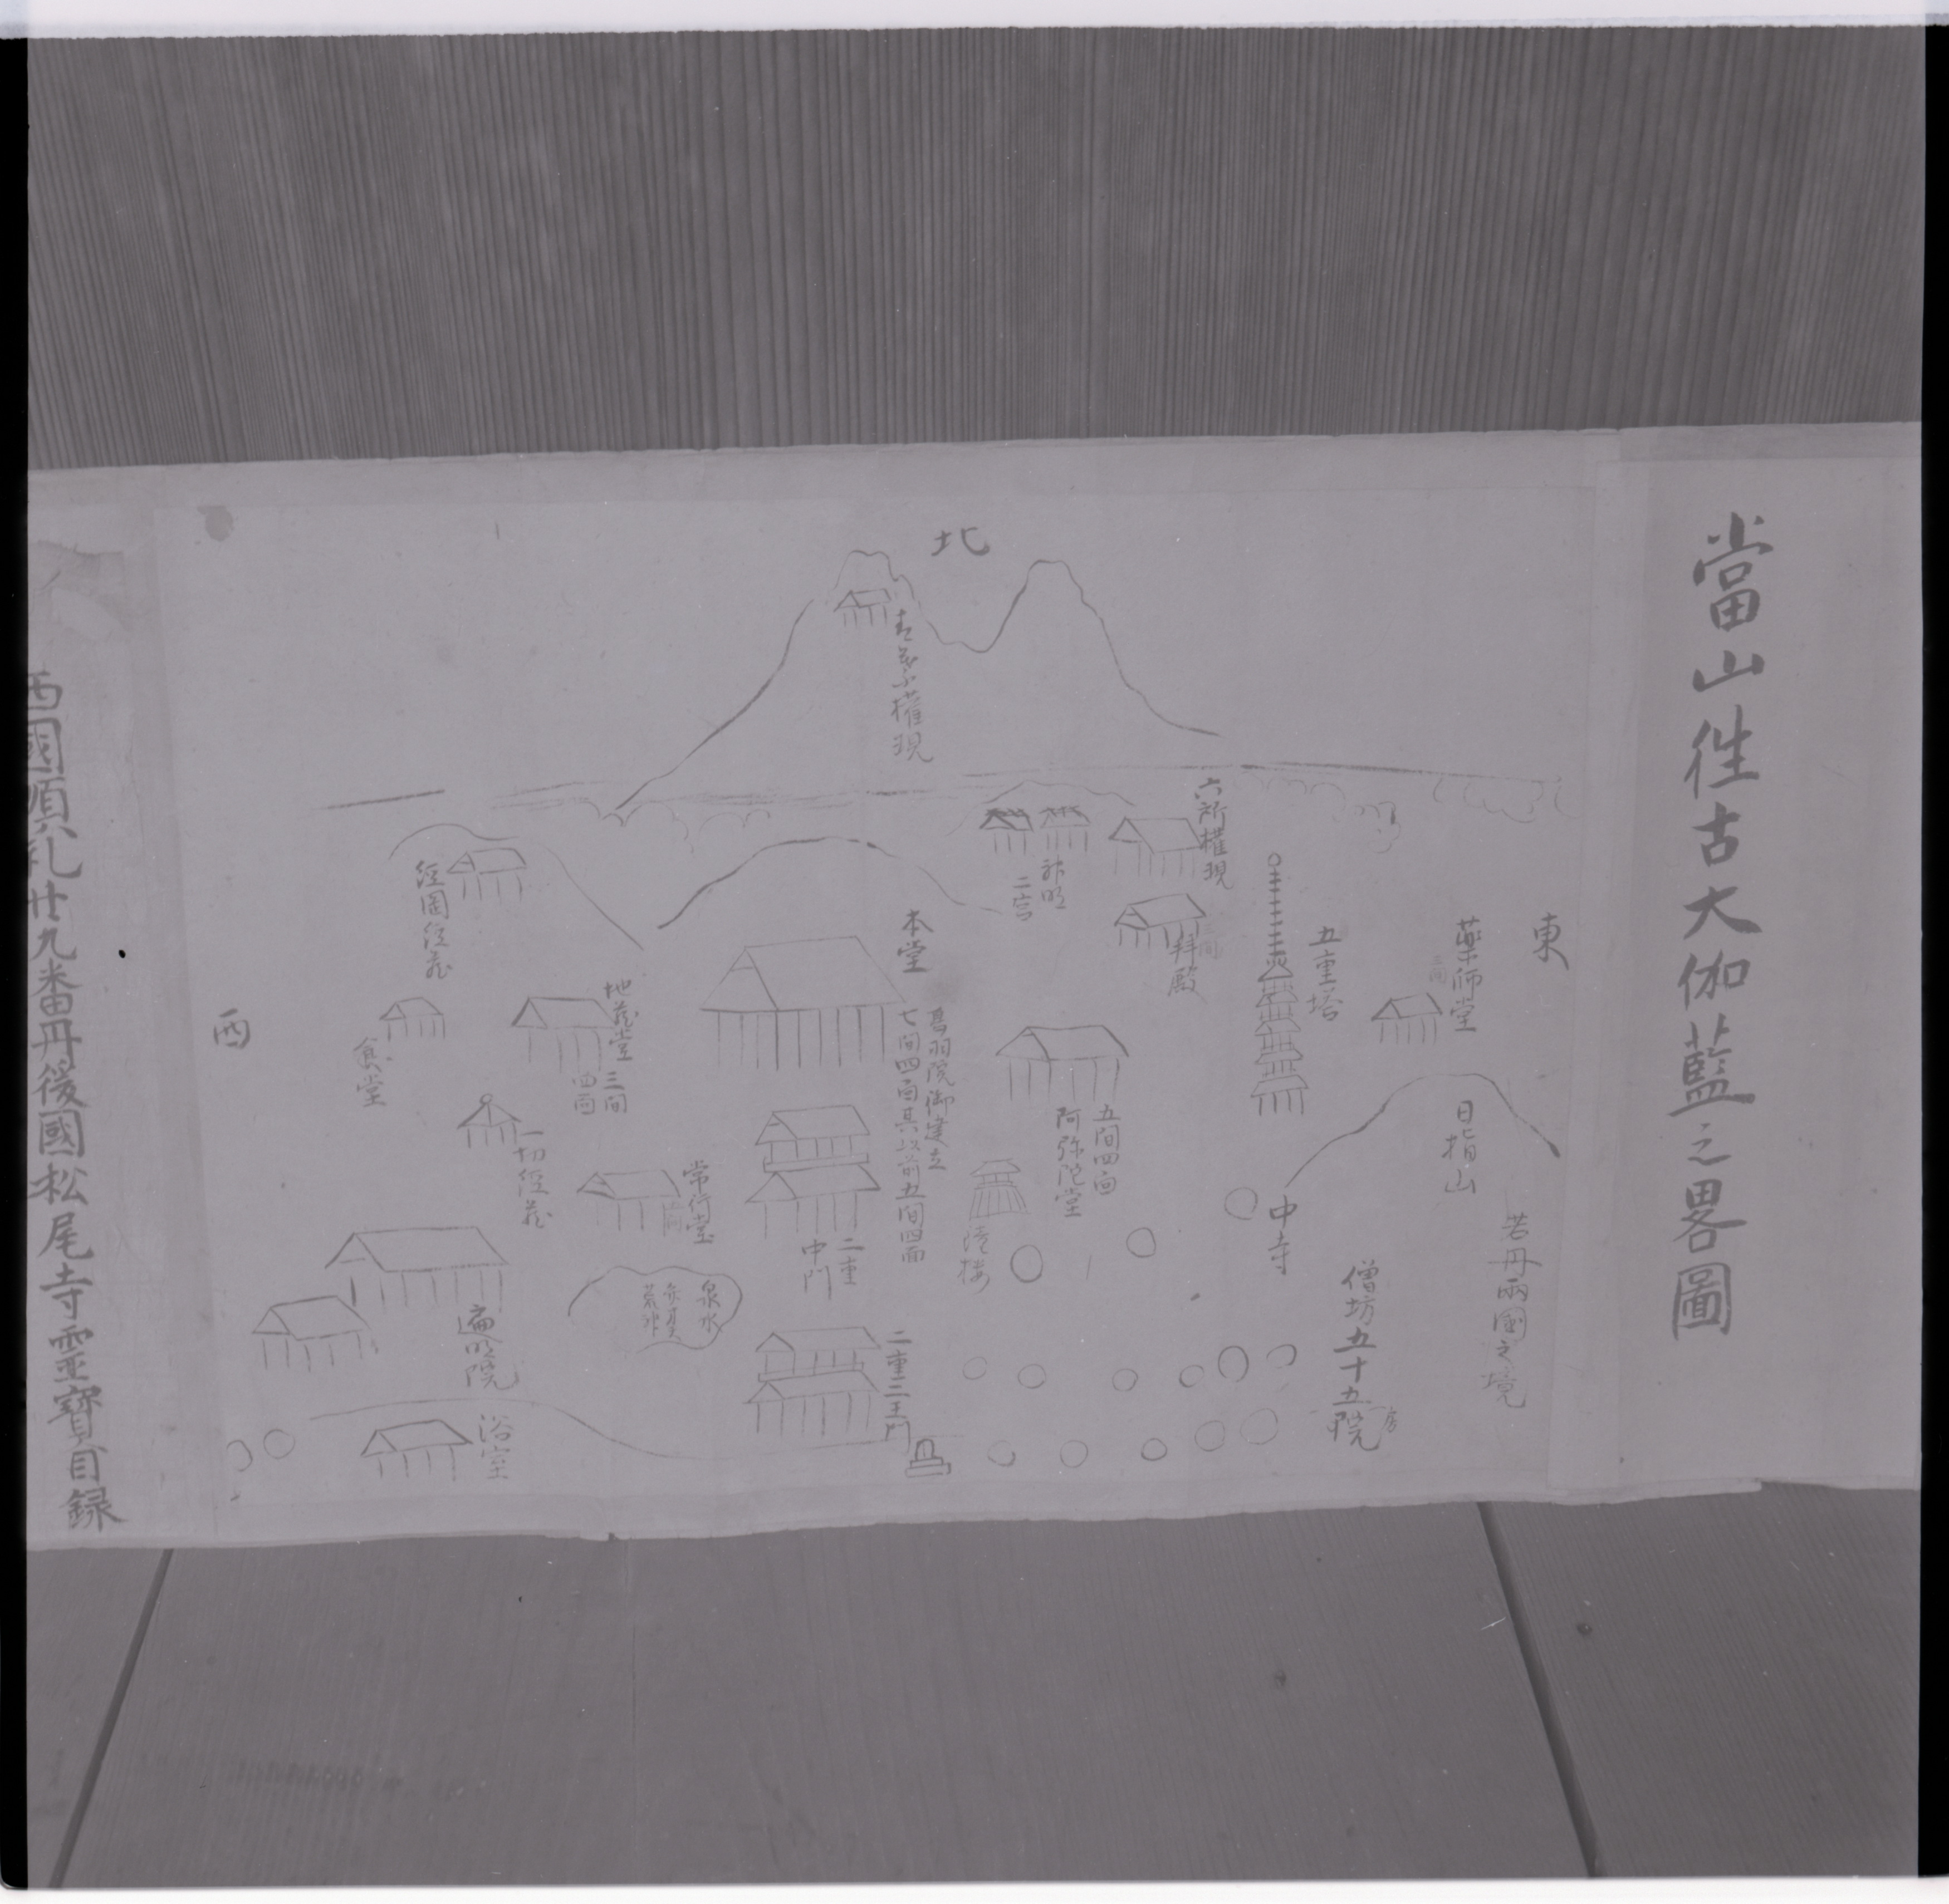 當山徃古大伽藍之畧圖
北
東
西
六所権現
神明
二宮
拝殿
三間
五重塔
薬師堂
三間
日指山
若丹兩國之境
中寺
僧坊五十五院
本堂
鳥羽院御建立
七間四面其以前五間四面
五間四面
阿弥陀堂
二重
中門
二重二王門
地蔵堂 三間
四面
食堂
一切經蔵
常行堂
泉水
遍明院
浴室
西國順礼廿九番丹後國松尾寺霊寶目録